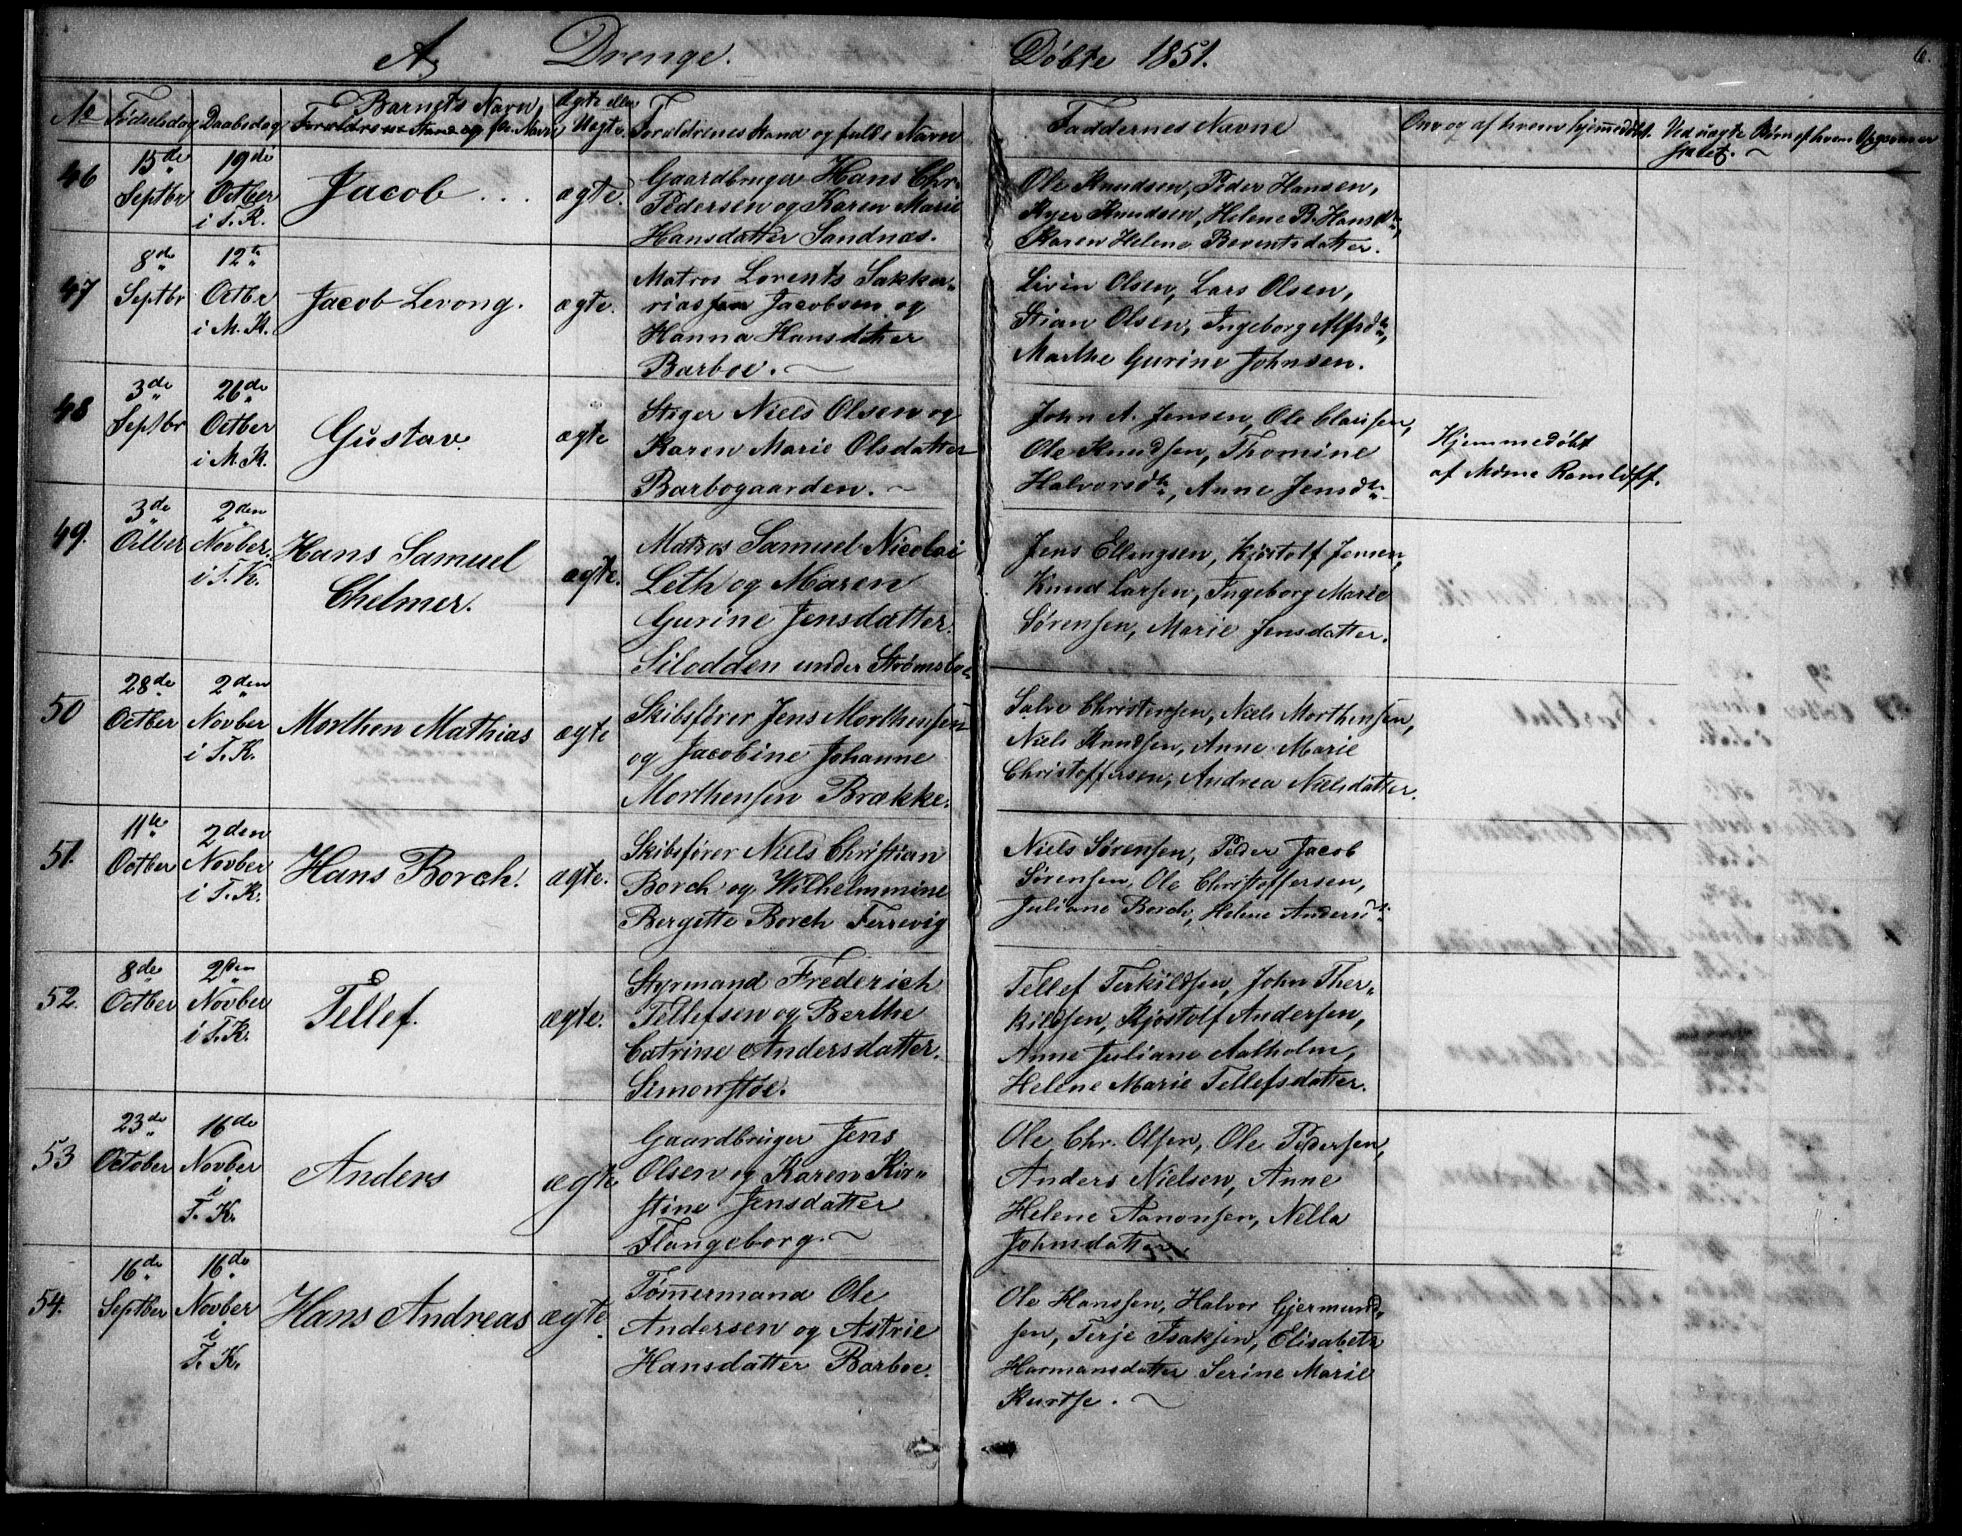 A, Drenge. Døbte 1851. 6.
No Fødselsdag Daabsdag Barnets Navn Ægte eller Uægte. Forældrenes Stand og fulde Navn Faddernes Navne Om og af hvem hjemmedøbt. Ved uægte Børn af hvem Opgivelsen
46
15de
Septbr
19de
Octber
i T. K.
Jacob . . .
ægte.
Gaardbruger Hans Chr.
Pedersen og Karen Marie
Hansdatter Sandnæs.
Ole Knudsen, Peder Hansen,
Knudsen, Helene B. Hansdtr,
Karen Helene Berentsdatter.
47
8de
Septbr
12te
Octbr
i M. K.
Jacob Levong.
ægte.
Matros Lorents Sakka-
riassen Jacobsen og
Hanna Hansdatter
Barboe.
Sivin Olsen, Lars Olsen,
Stian Olsen, Ingeborg Alfsdtr,
Marthe Gurine Johnsen.
48
3de
Septbr
26de
Octber
i M. K.
Gustav.
ægte
Niels Olsen og
Karen Marie Olsdatter
Barbogaarden.
John A. Jensen, Ole Clausen,
Ole Knudsen, Thomine
Halvorsdtr, Anne Jensdtr.
Hjemmedøbt
af Mdme Ramløff.
49.
3de
Octber
2den
Novber.
i T. K.
Hans Samuel
Chelmer.
ægte.
Matros Samuel Nicolai
Leth og Maren
Gurine Jensdatter.
Silodden under Strømsboe
Jens Ellingsen, Kjøstolf Jensen,
Knud Larsen, Ingeborg Marie
Sørensen, Marie Jensdatter.
50
28de
Octber
2den
Novber
i T. K.
Morthen Mathias
ægte
Skibsfører Jens Morthensen
og Jacobine Johanne
Morthensen Brække.
Salve Christensen, Niels Morthensen,
Niels Knudsen, Anne Marie
Christoffersen, Andrea Nielsdatter.
51.
11te
Octber
2den
Novber
i T. K.
Hans Borch.
ægte.
Skibsfører Niels Christian
Borch og Wilhelmmine
Bergette Borch Ferrevig
Niels Sørensen, Peder Jacob
Sørensen, Ole Christoffersen,
Juliane Borch, Helene Andersdtr.
52.
8de
Octber
2den
Novber
i T. K.
Tellef.
ægte.
Styrmand Frederich
Tellefsen og Berthe
Catrine Andersdatter.
Simonstøe.
Tellef Terkildsen, John Ther-
kildsen, Kjøstolf Andersen,
Anne Juliane Aalholm,
Helene Marie Tellefsdatter.
53
23de
October
16de
Novber
i
T. K.
Anders
ægte
Gaardbruger Jens
Olsen og Karen Kir-
stine Jensdatter
Flangeborg.
Ole Chr. Olsen, Ole Pedersen,
Anders Nielsen, Anne
Helene Aanonsen, Nella
Johnsdatter.
54.
16de
Septber
16de
Novber
i
T. K.
Hans Andreas
ægte.
Tømmermand Ole
Andersen og Astrie
Hansdatter Barboe.
Ole Hanssen, Halvor Gjermund-
sen, Terje Isaksen, Elisabeth
Harmansdatter Serine Marie
Kurtse.